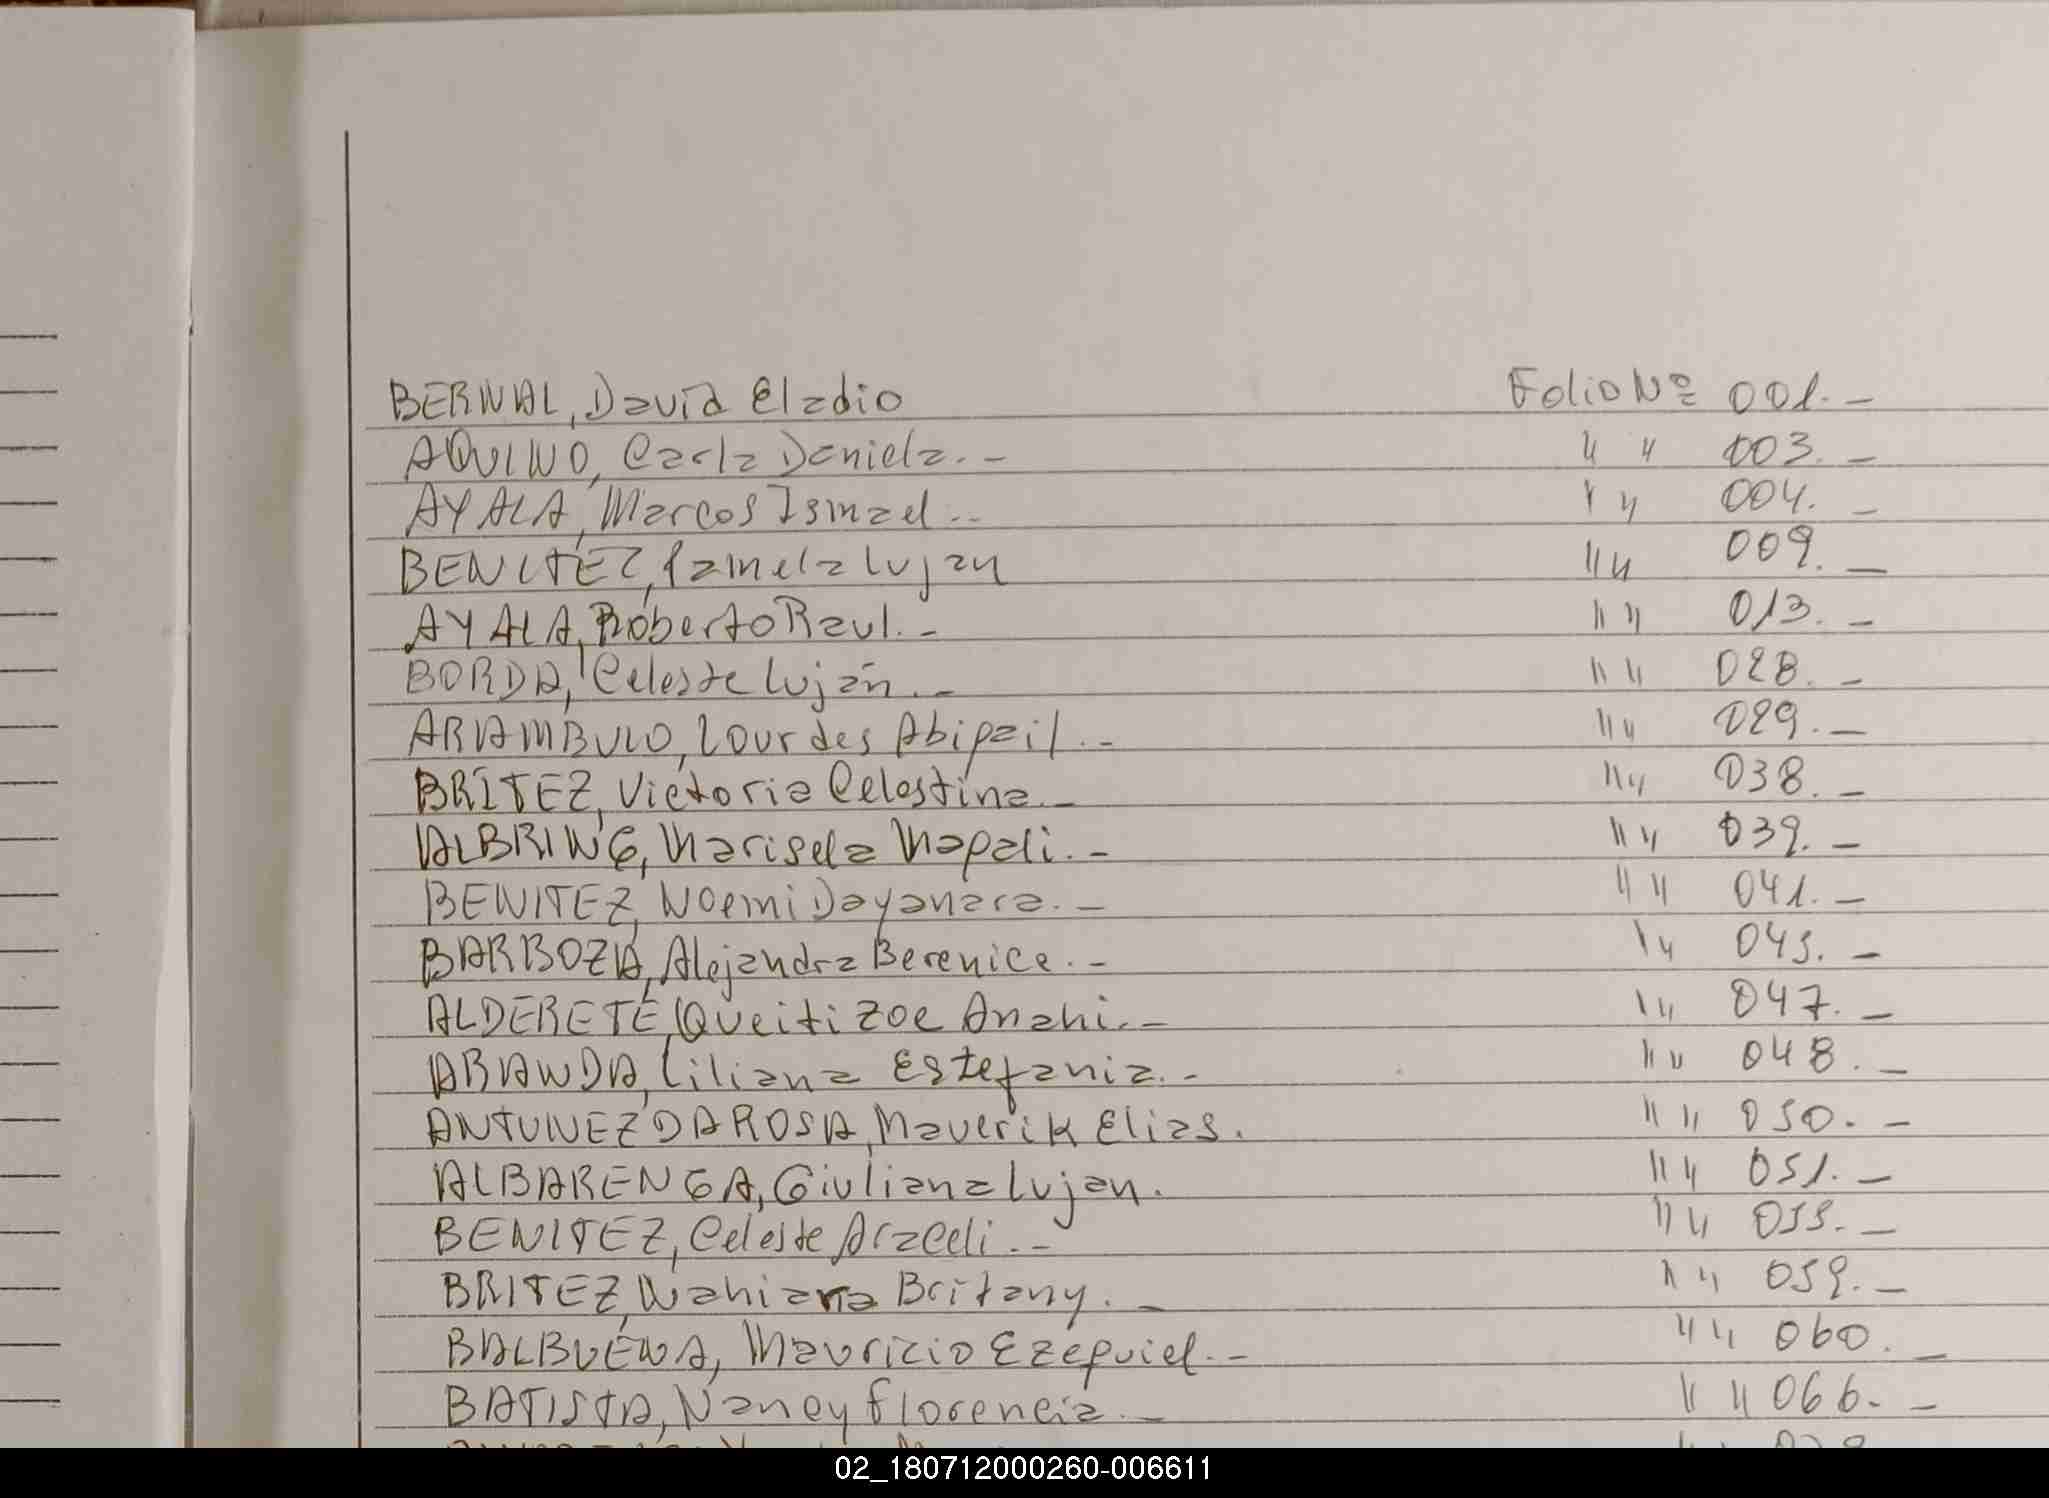 BERNAL, David Eladio Folio Nº 001.-
AQUINO, Carla Daniela.- " " 003.-
AYALA, Marcos Ismael.- " " 004.-
BENITEZ, Pamela Lujan " " 009.-
AYALA, Roberto Raul.- " " 013.-
BORDA, Celeste Luján.- " " 028.-
ARIAMBULO, Lourdes Abigail.- " " 029.-
BRITEZ, Victoria Celestina.- " " 038.-
ALBRING, Marisela Magali.- " " 039.-
BENITEZ, Noemi Dayanara.- " " 041.-
BARBOZA, Alejandra Berenice.- " " 045.-
ALDERETE, Queiti Zoe Anahi.- " " 047.-
ARANDA, Liliana Estefania.- " " 048.-
ANTUNEZ DA ROSA, Maverik Elias. " " 050.-
ALBARENGA, Giuliana Lujan. " " 051.-
BENITEZ, Celeste Araceli.- " " 055.-
BRITEZ, Nahiara Britany.- " " 059.-
BALBUENA, Mauricio Ezequiel.- " " 060.-
BATISTA, Nancy Florencia.- " " 066.-
02_180712000260-006611